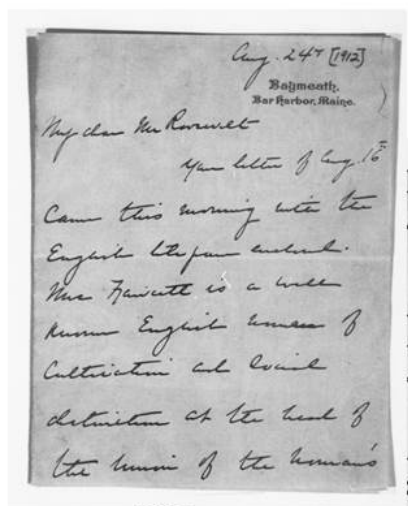 Aug. 24th [1912]
Baymeath,
Bar Harbor, Maine.
My dear Mr Roosevelt
Your letter of Aug. 16th
Came this morning with the
English
Mrs Fawcett is a well
known English woman of
Cultivation and Social
distinction at the head of
the Union of the Woman's